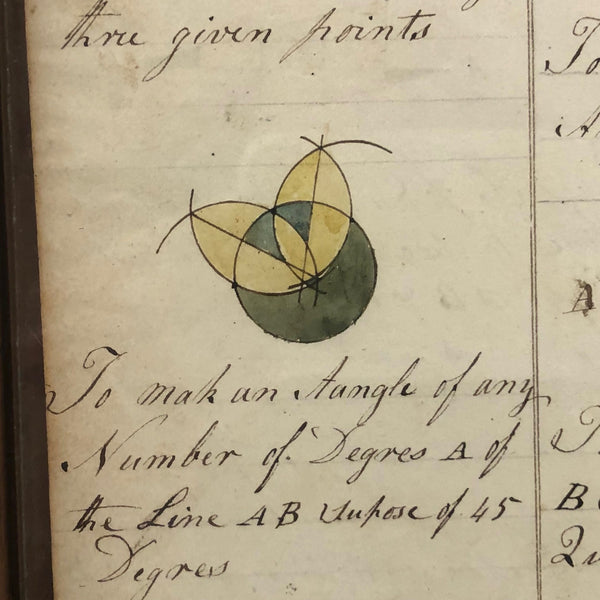 three given points
To mak an Aangle of any
Number of Degres A of
the Line AB Supose of 45
Degres
To
A
B